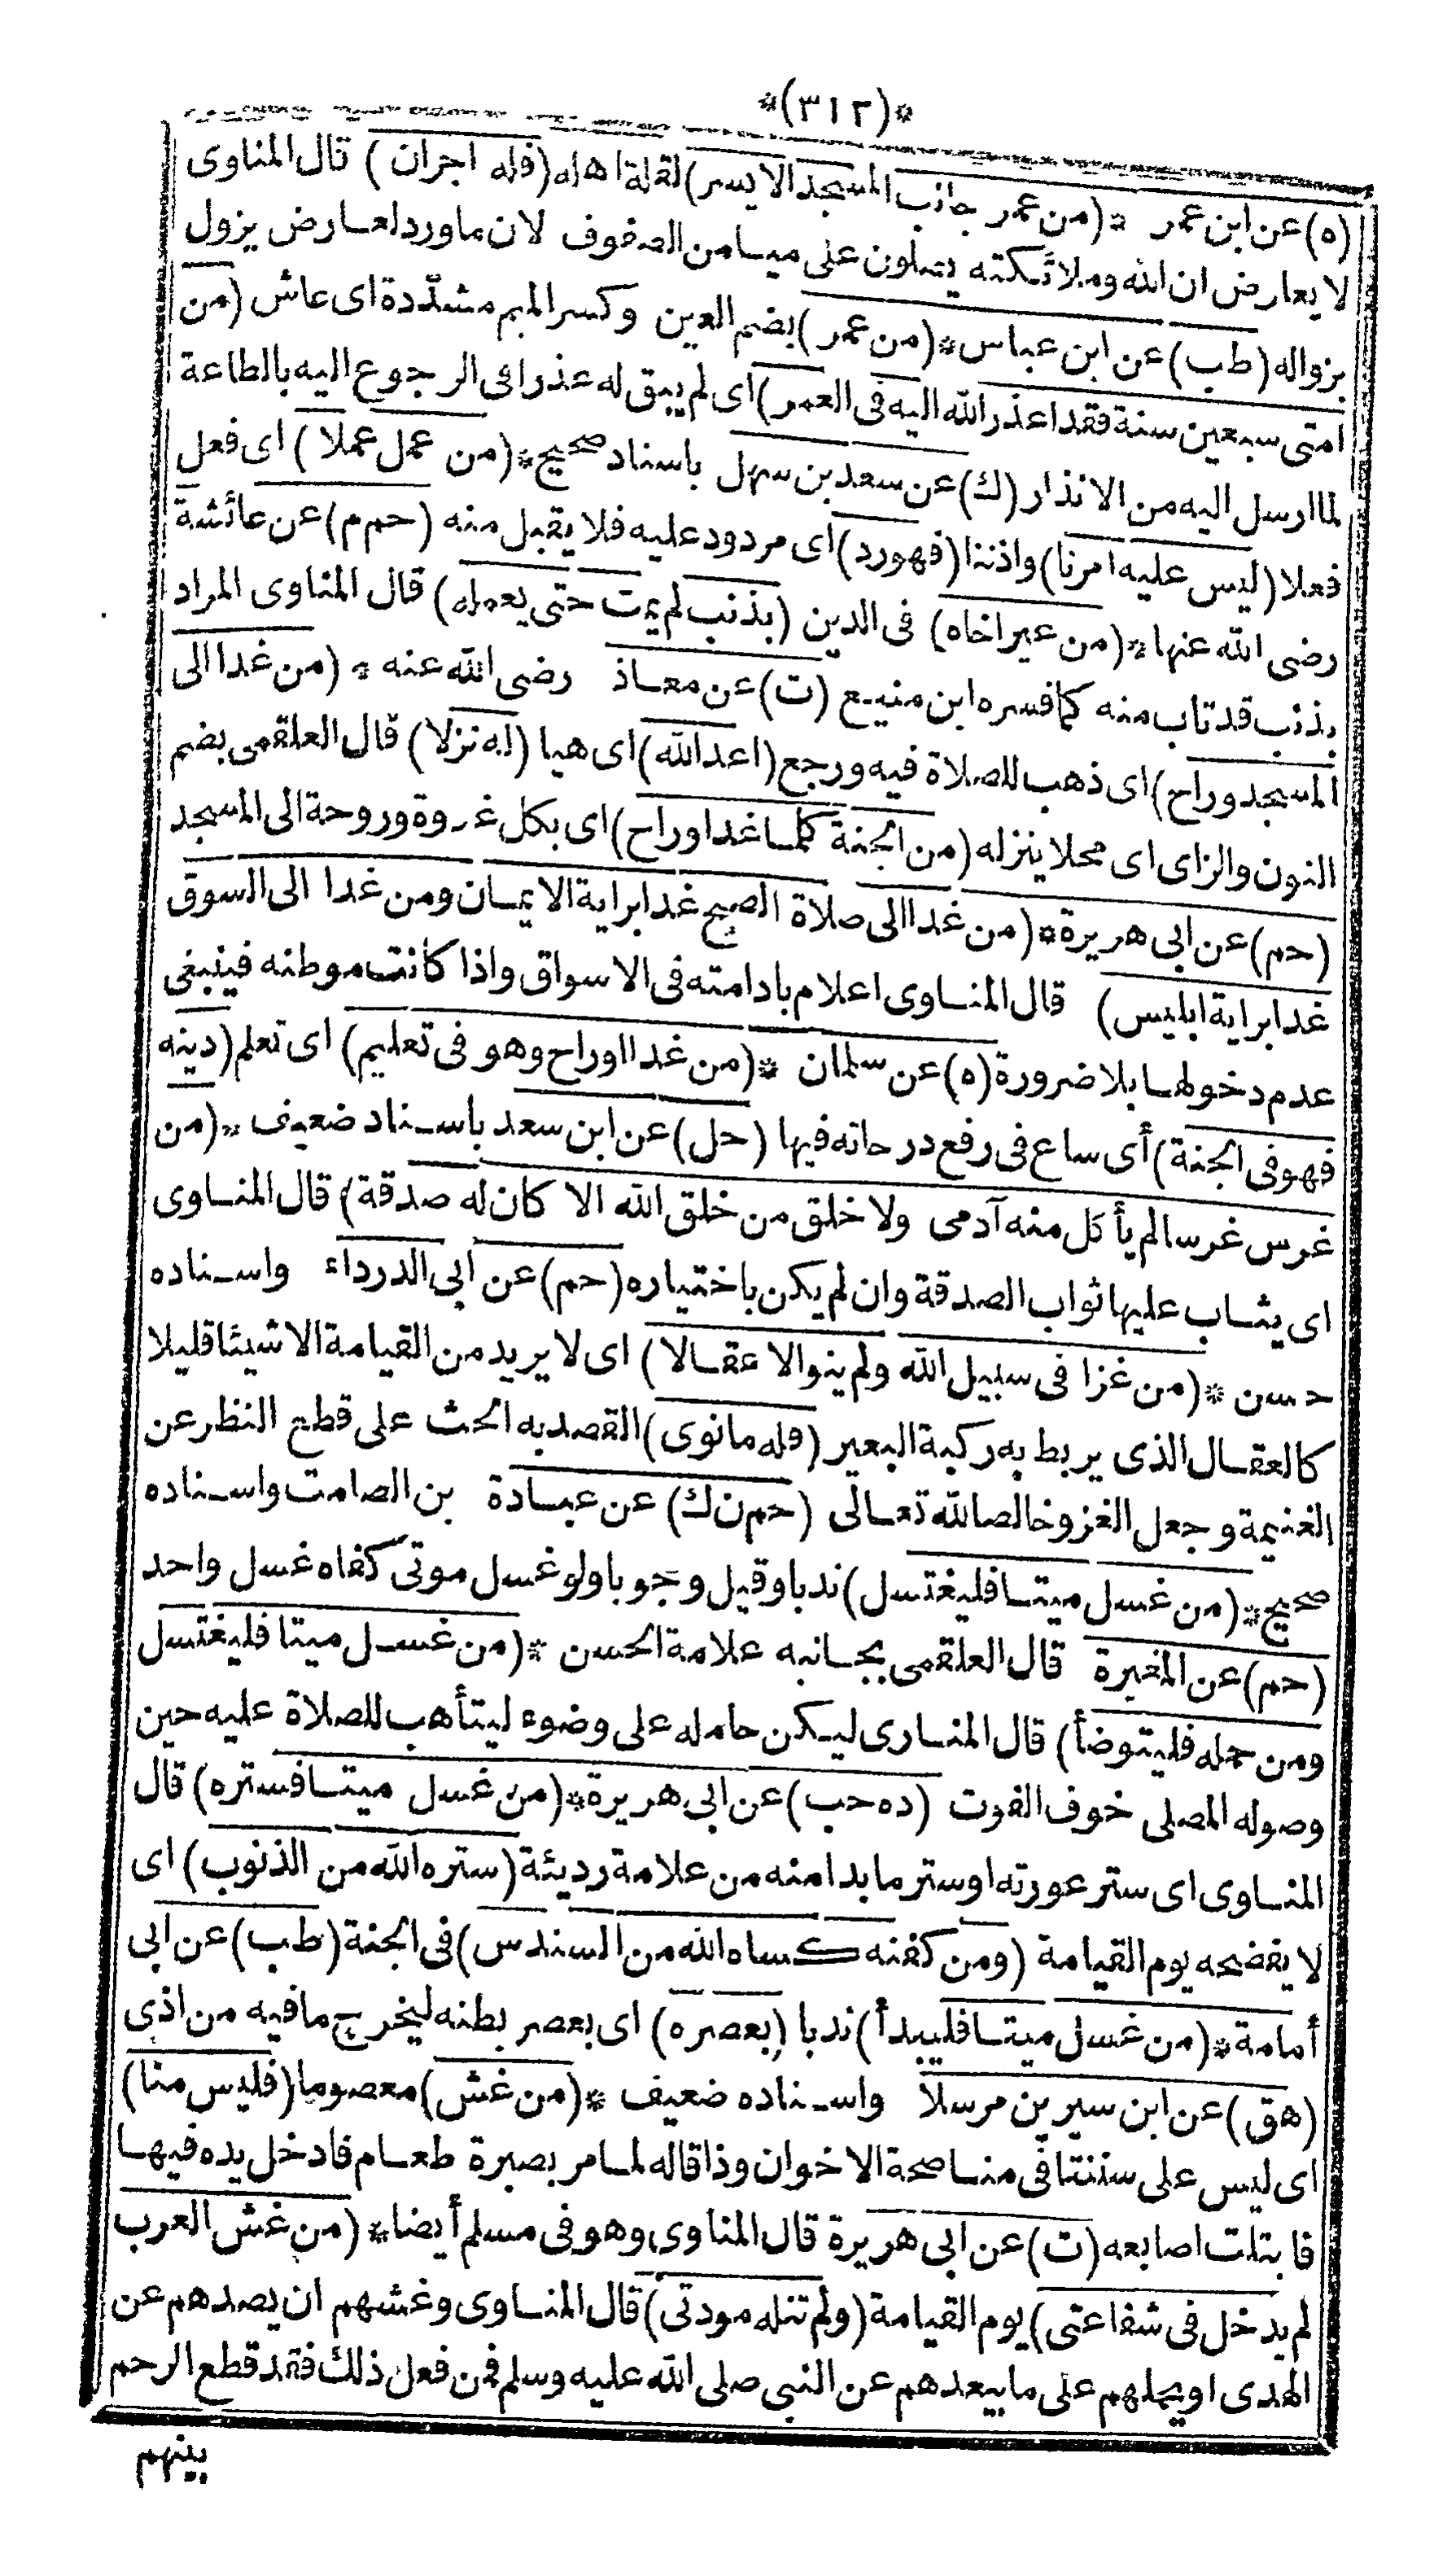 *(٣١٢)*
(ه) عن ابن عمر * (من عمر جانب المسجد الايسر) لقلة اهله (فله اجران) قال المناوى
لا يعارض ان الله وملائكته يصلون على ميـامن الصفوف لان ماورد لعارض يزول
بزواله (طب) عن ابن عباس * (من عمر) بضم العين وكسر الميم مشدّدة اى عاش (من
امتى سبعين سنة فقد اعذر الله اليه فى العمر) اى لم يبق له عذرا فى الرجوع اليه بالطاعة
لما ارسل اليه من الانذار (ك) عن سعد بن سهل باسناد صحيح * (من عمل عملا) اى فعل
فعلا (ليس عليه امرنا) واذننا (فهورد) اى مردود عليه فلا يقبل منه (حم م) عن عائشة
رضى الله عنها * (من عير اخاه) فى الدين (بذنب لم يمت حتى يعمله) قال المناوى المراد
بذنب قد تاب منه كما فسره ابن منيـع (ت) عن معـاذ رضى الله عنه * (من غدا الى
المسجد وراح) اى ذهب للصلاة فيه ورجع (اعد الله) اى هيا (له نزلا) قال العلقمى بضم
النون والزاى اى محلا ينزله (من الجنة كلمـا غدا وراح) اى بكل غدوة وروحة الى المسجد
(حم) عن ابى هريرة * (من غدا الى صلاة الصبح غدا براية الايمـان ومن غدا الى السوق
غدا براية ابليس) قال المنـاوى اعلام بادامته فى الاسواق واذا كانت موطنه فينبغى
عدم دخولهـا بلا ضرورة (ه) عن سلمان * (من غدا اوراح وهو فى تعليم) اى تعلم (دينه
فهو فى الجنة) أى ساع فى رفع درجاته فيها (حل) عن ابن سعد باسـناد ضعيف * (من
غرس غرسا لم يأكل منه آدمى ولا خلق من خلق الله الا كان له صدقة) قال المنـاوى
اى يثـاب عليها ثواب الصدقة وان لم يكن باختياره (حم) عن ابى الدرداء واسـناده
حسن * (من غزا فى سبيل الله ولم ينو الا عقـالا) اى لا يريد من القيامة الا شيئا قليلا
كالعقـال الذى يربط به ركبة البعير (فله مانوى) القصد به الحث على قطع النظر عن
الغنيمة وجعل الغزو خالصا لله تعـالى (حم ن ك) عن عبـادة بن الصامت واسـناده
صحيح * (من غسل ميتـا فليغتسل) ندبا وقيل وجوبا ولو غسل موتى كفاه غسل واحد
(حم) عن المغيرة قال العلقمى بجـانبه علامة الحسن * (من غسـل ميتا فليغتسل
ومن حمله فليتوضأ) قال المنـاوى ليـكن حامله على وضوء ليتأهب للصلاة عليه حين
وصوله المصلى خوف الفوت (ده حب) عن ابى هريرة * (من غسل ميتـا فستره) قال
المنـاوى اى ستر عورته او ستر ما بدا منه من علامة رديئة (ستره الله من الذنوب) اى
لا يفضحه يوم القيامة (ومن كفنه كساه الله من السندس) فى الجنة (طب) عن ابى
أمامة * (من غسل ميتـا فليبدأ) ندبا (بعصره) اى بعصر بطنه ليخرج ما فيه من اذى
(هق) عن ابن سيرين مرسلا واسـناده ضعيف * (من غش) معصوما (فليس منا)
اى ليس على سنتنا فى منـاصحة الاخوان وذا قاله لمـا مر بصبرة طعـام فادخل يده فيهـا
فابتلت اصابعه (ت) عن ابى هريرة قال المناوى وهو فى مسلم أيضا * (من غش العرب
لم يدخل فى شفاعتى) يوم القيامة (ولم تنله مودتى) قال المنـاوى وغشهم ان يصدهم عن
الهدى او يحملهم على ما يبعدهم عن النبى صلى الله عليه وسلم فمن فعل ذلك فقد قطع الرحم
بينهم